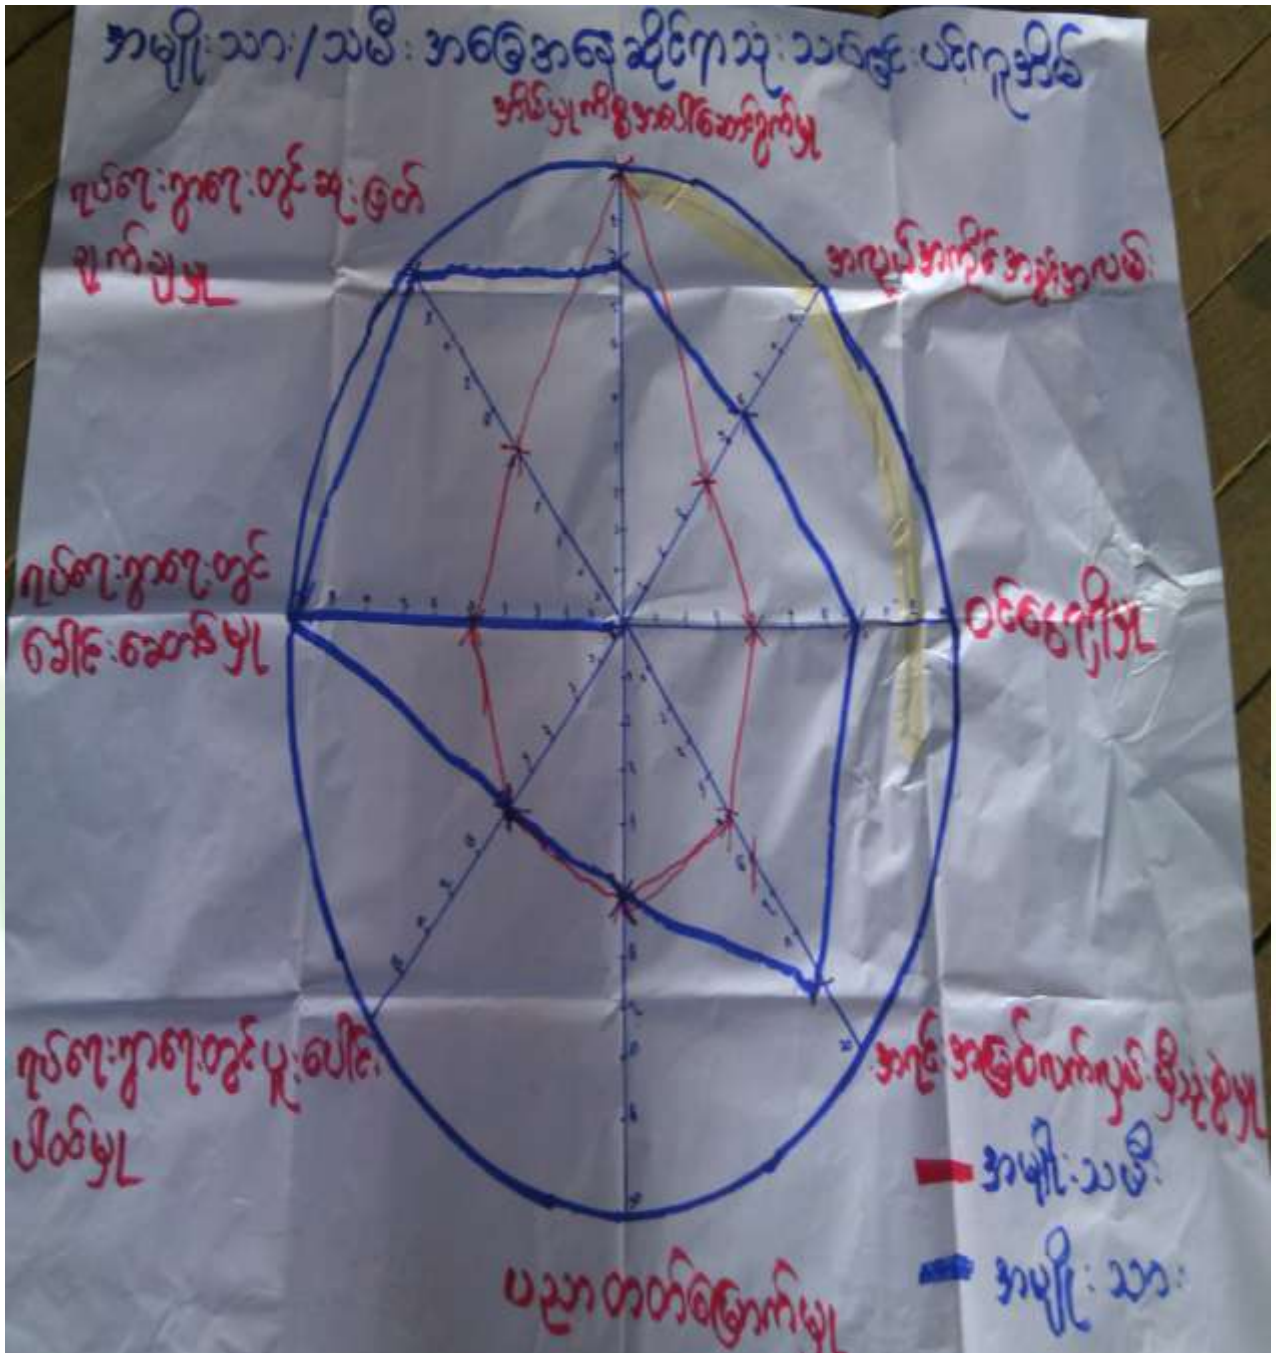 အမျိုးသား/သမီး အခြေအနေဆိုင်ရာသုံးသပ်ခြင်းပင့်ကူအိမ်
အိမ်မှုကိစ္စအပေါ်ဆောင်ရွက်မှု
ရပ်ရေးရွာရေးတွင်ဆုံးဖြတ်
ချက်ချမှု
အလုပ်အကိုင်အခွင့်အလမ်း
ရပ်ရေးရွာရေးတွင်
ခေါင်းဆောင်မှု
ဝင်ငွေရရှိမှု
ရပ်ရေးရွာရေးတွင်ပူးပေါင်း
ပါဝင်မှု
အရင်းအမြစ်လက်လှမ်းမှီသုံးစွဲမှု
အမျိုးသမီး
အမျိုးသား
ပညာတတ်မြောက်မှု